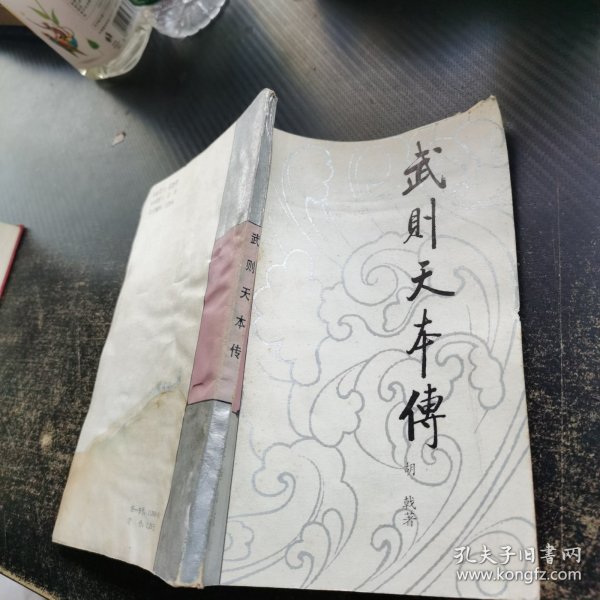 武則天本傳
胡戟著
武则天本传
孔夫子旧书网
www.kongfz.com